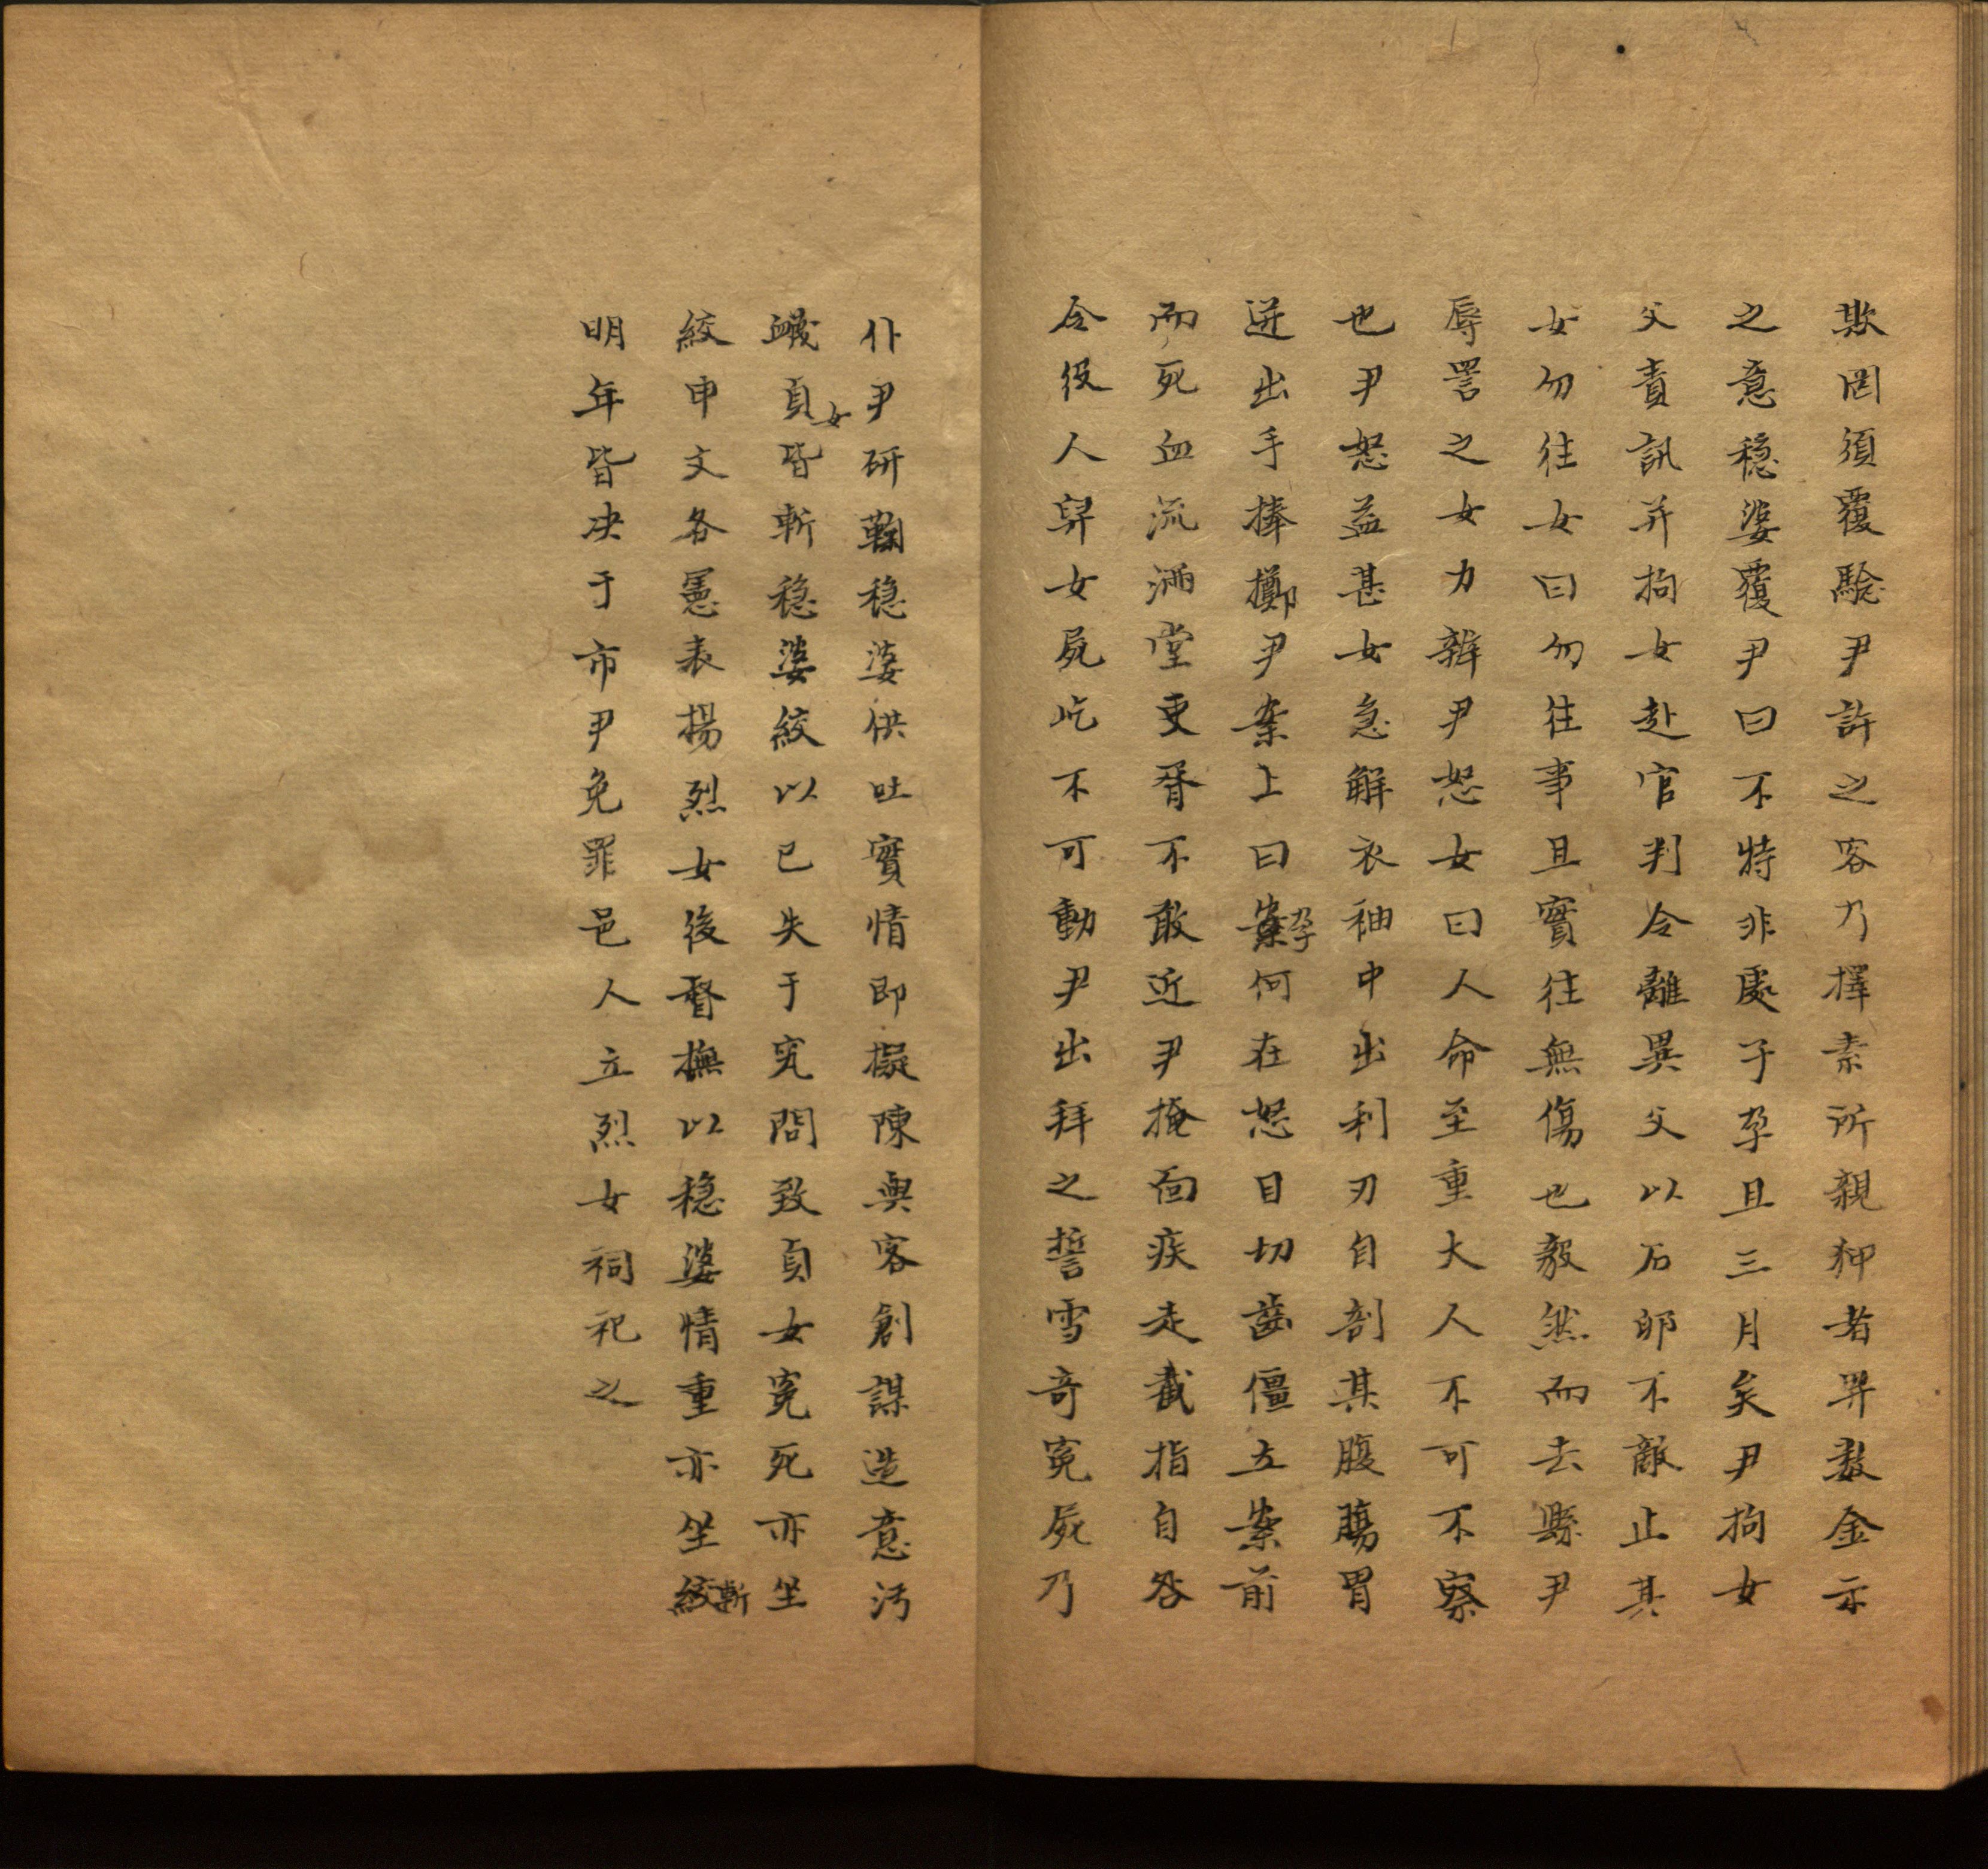 欺罔須覆驗尹許之客乃擇素所親狎者畀數金示
之意穩婆覆尹曰不特非處子孕且三月矣尹拘女
父責訊并拘女赴官判令離異父以石卵不敵止其
女勿往女曰勿往事且實往無傷也毅然而去縣尹
辱詈之女力辨尹怒女曰人命至重大人不可不察
也尹怒益甚女急解衣袖中出利刃自剖其腹腸胃
迸出手捧擲尹案上曰孕何在怒目切齒僵立案前
而死血流滿堂吏胥不敢近尹掩面疾走截指自咎
令役人舁女屍屹不可動尹出拜之誓雪奇冤屍乃
仆尹研鞫穩婆供吐實情即擬陳與客創謀造意污
衊貞女皆斬穩婆絞以已失于究問致貞女冤死亦坐
絞申文各憲表揚烈女後督撫以穩婆情重亦坐斬
明年皆决于市尹免罪邑人立烈女祠祀之